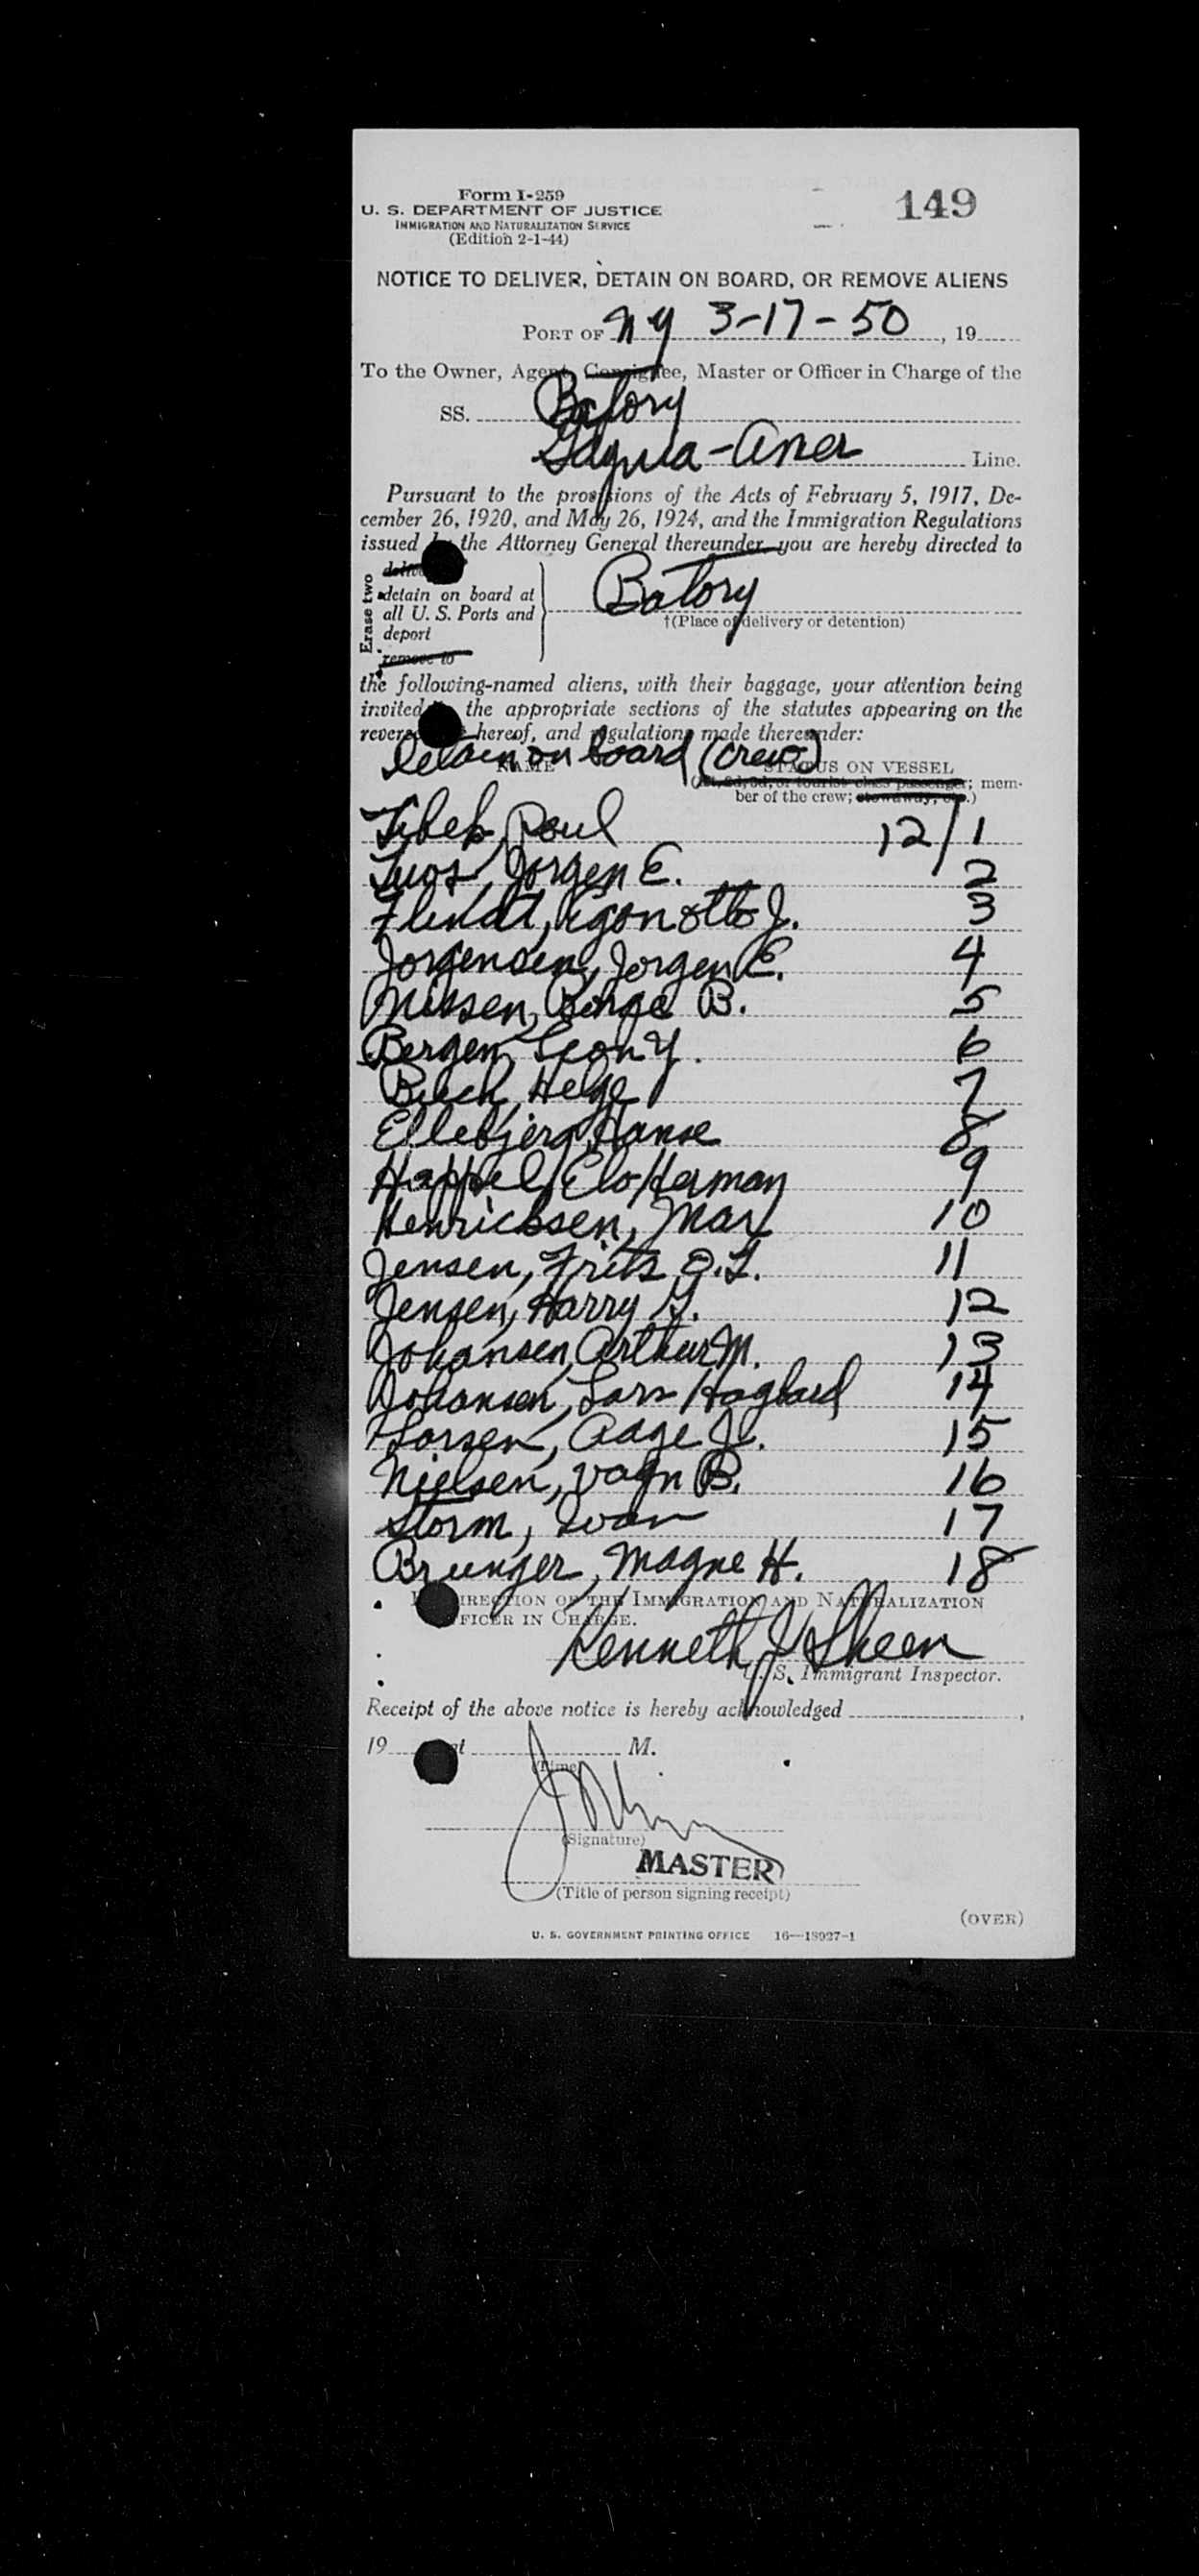 Form I-259
U. S. DEPARTMENT OF JUSTICE
IMMIGRATION AND NATURALIZATION SERVICE
(Edition 2-1-44)
149
NOTICE TO DELIVER, DETAIN ON BOARD, OR REMOVE ALIENS
PORT OF NY 3-17-50, 19
To the Owner, Agent, Consignee, Master or Officer in Charge of the
SS. Batory
Gdynia-Amer Line.
Pursuant to the provisions of the Acts of February 5, 1917, De-
cember 26, 1920, and May 26, 1924, and the Immigration Regulations
issued by the Attorney General thereunder you are hereby directed to
Erase two
detain on board at
all U. S. Ports and
deport
remove to
Batory
†(Place of delivery or detention)
the following-named aliens, with their baggage, your attention being
invited the appropriate sections of the statutes appearing on the
reverse hereof, and regulations made thereunder:
Detain on board (crew)
NAME STATUS ON VESSEL
(1st, 2d, 3d, or tourist class passenger; mem-
ber of the crew; stowaway, etc.)
Poul 12/1
Jorgen E. 2
Flindt, Egon Otto J. 3
Jorgensen, Jorgen E. 4
Nissen, Borge B. 5
Bergen, Leon Y. 6
Bech, Helge 7
Ellebjerg, Hanse 8
Happel, Elo Herman 9
Henricksen, Max 10
Jensen, Frits O.F. 11
Jensen, Harry G. 12
Johansen, Arthur M. 13
Johansen, Lars Hagbard 14
Larsen, Aage 15
Nielsen, Vagn B. 16
Storm, Ivan 17
Brunger, Magne H. 18
DIRECTION OF THE IMMIGRATION AND NATURALIZATION
OFFICER IN CHARGE.
Kenneth J Sheen
U. S. Immigrant Inspector.
Receipt of the above notice is hereby acknowledged ,
19 at M.
(Time)
(Signature)
MASTER
(Title of person signing receipt)
(OVER)
U. S. GOVERNMENT PRINTING OFFICE 16—18927-1